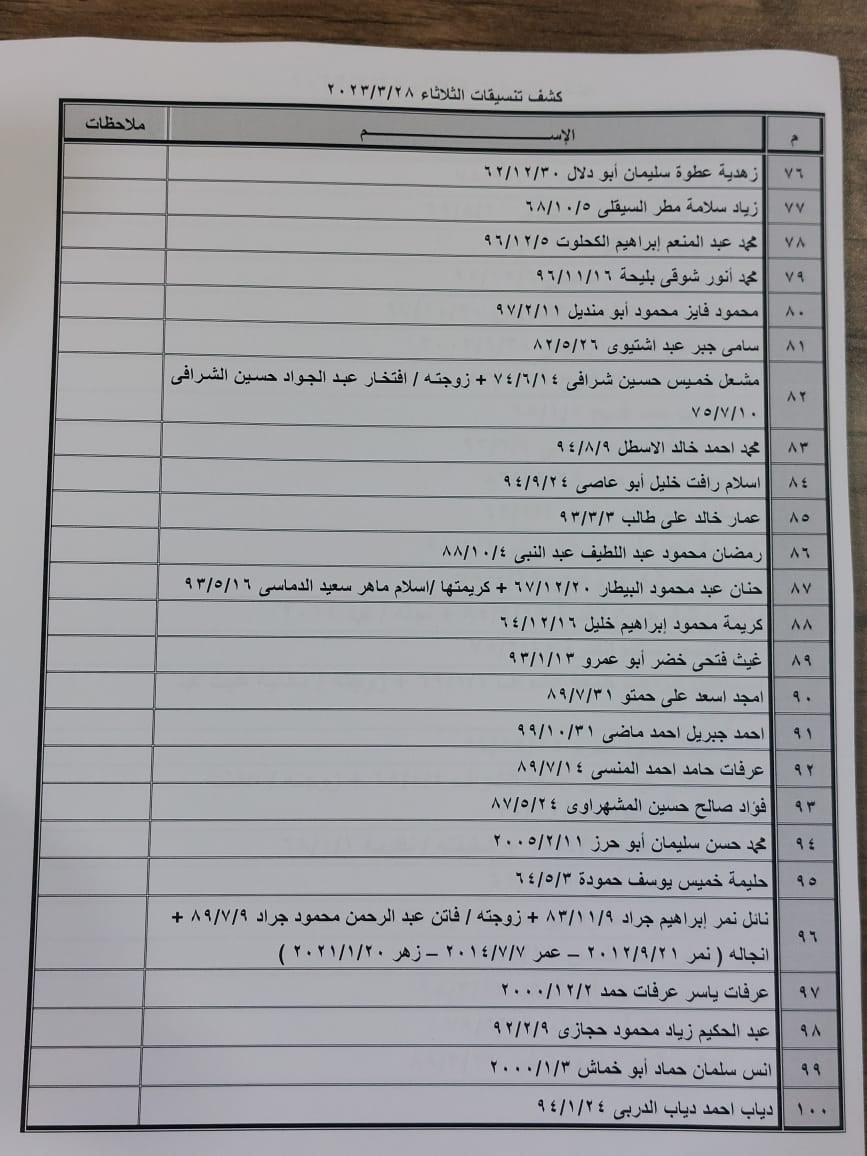 كشف تنسيقات الثلاثاء ٢٠٢٣/٣/٢٨
م الإســـم ملاحظات
٧٦ زهدية عطوة سليمان أبو دلال ٦٢/١٢/٣٠
٧٧ زياد سلامة مطر السيقلى ٦٨/١٠/٥
٧٨ محمد عبد المنعم إبراهيم الكحلوت ٩٦/١٢/٥
٧٩ محمد أنور شوقى بليحة ٩٦/١١/١٦
٨٠ محمود فايز محمود أبو منديل ٩٧/٢/١١
٨١ سامى جبر عبد اشتيوى ٨٢/٥/٢٦
٨٢ مشعل خميس حسين شرافى ٧٤/٦/١٤ + زوجته / افتخار عبد الجواد حسين الشرافى
٧٥/٧/١٠
٨٣ محمد احمد خالد الاسطل ٩٤/٨/٩
٨٤ اسلام رافت خليل أبو عاصى ٩٤/٩/٢٤
٨٥ عمار خالد على طالب ٩٣/٣/٣
٨٦ رمضان محمود عبد اللطيف عبد النبى ٨٨/١٠/٤
٨٧ حنان عبد محمود البيطار ٦٧/١٢/٢٠ + كريمتها /اسلام ماهر سعيد الدماسى ٩٣/٥/١٦
٨٨ كريمة محمود إبراهيم خليل ٦٤/١٢/١٦
٨٩ غيث فتحى خضر أبو عمرو ٩٣/١/١٣
٩٠ امجد اسعد على حمتو ٨٩/٧/٣١
٩١ احمد جبريل احمد ماضى ٩٩/١٠/٣١
٩٢ عرفات حامد احمد المنسى ٨٩/٧/١٤
٩٣ فؤاد صالح حسين المشهراوى ٨٧/٥/٢٤
٩٤ محمد حسن سليمان أبو حرز ٢٠٠٥/٢/١١
٩٥ حليمة خميس يوسف حمودة ٦٤/٥/٣
٩٦ نائل نمر إبراهيم جراد ٨٣/١١/٩ + زوجته / فاتن عبد الرحمن محمود جراد ٨٩/٧/٩ +
انجاله ( نمر ٢٠١٢/٩/٢١ – عمر ٢٠١٤/٧/٧ – زهر ٢٠٢١/١/٢٠ )
٩٧ عرفات ياسر عرفات حمد ٢٠٠٠/١٢/٢
٩٨ عبد الحكيم زياد محمود حجازى ٩٢/٢/٩
٩٩ انس سلمان حماد أبو خماش ٢٠٠٠/١/٣
١٠٠ دياب احمد دياب الدربى ٩٤/١/٢٤